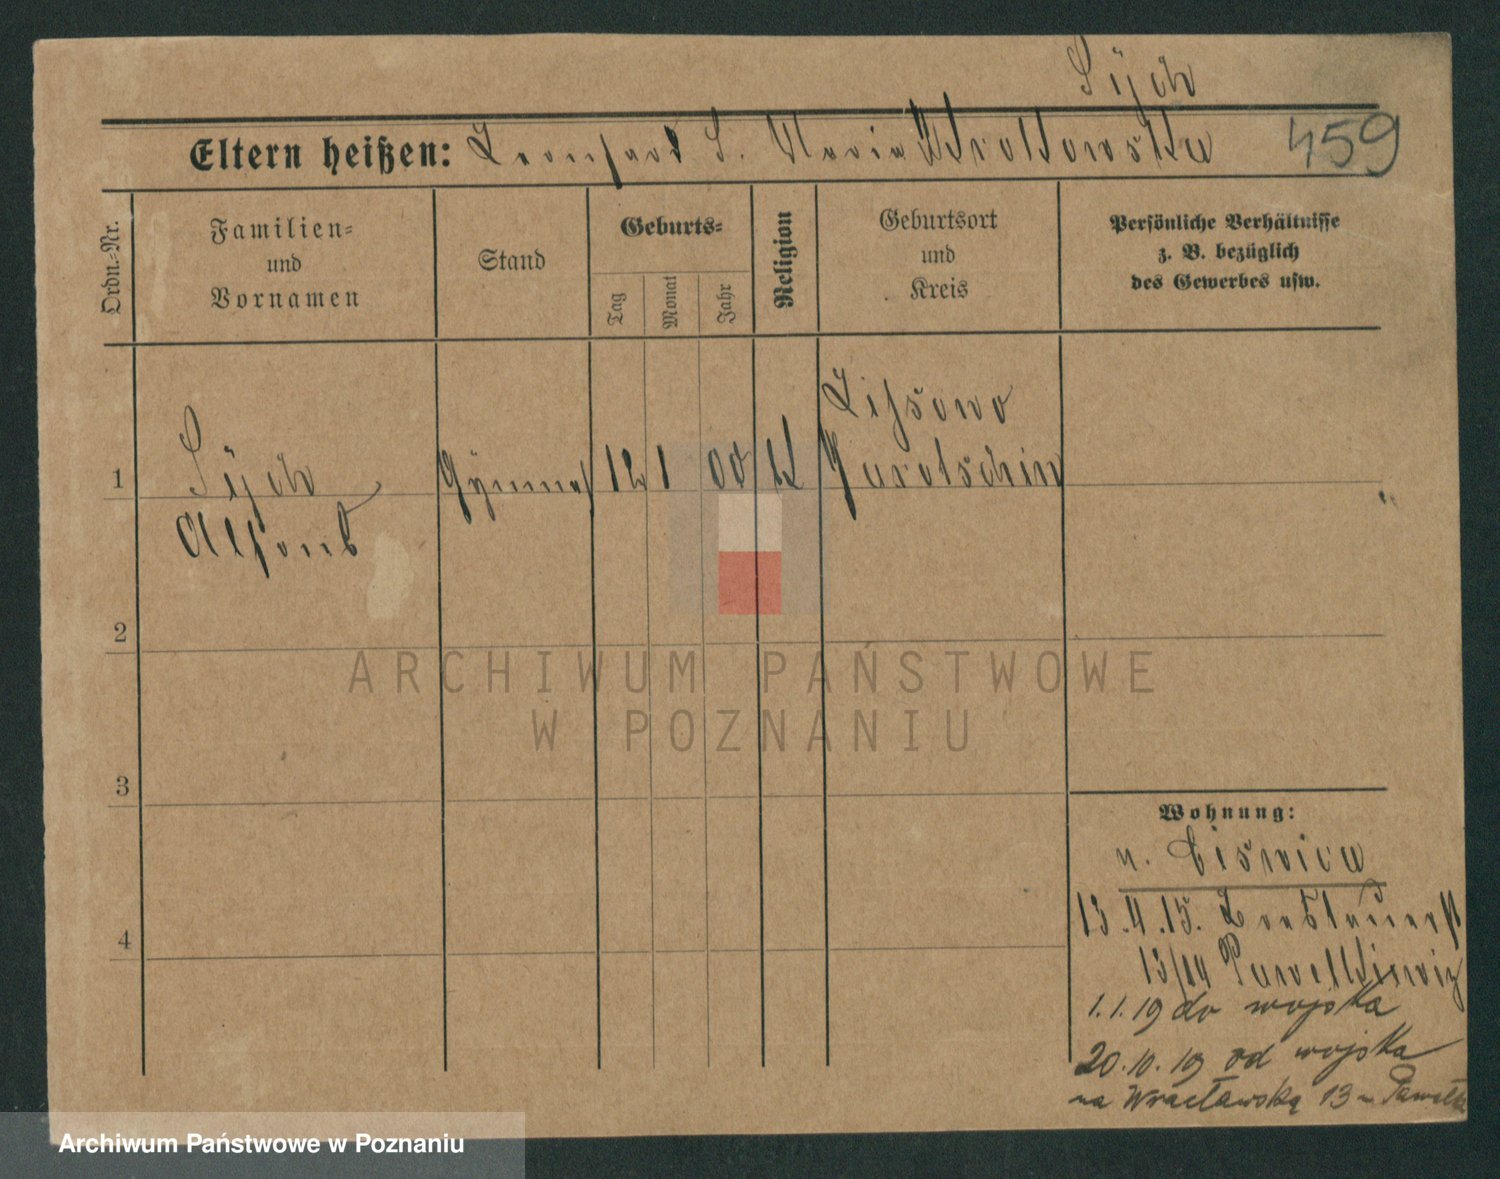 Sÿch
Eltern heißen: Leonhard S. Maria Krolkowska 459
Ordn.-Nr.
Familien-
und
Vornamen
Stand
Geburts-
Tag
Monat
Jahr
Religion
Geburtsort
und
Kreis
Persönliche Verhältnisse
z. B. bezüglich
des Gewerbes usw.
Lissowo
1 Sÿch Gÿmnas 12 1 00 k Jarotschin
Alfons
2
3
4
Wohnung:
n.
13.4.15.
13/14
1.1.19 do wojska
20.10.19 od wojska
na Wrocławską 13
ARCHIWUM PAŃSTWOWE
W POZNANIU
Archiwum Państwowe w Poznaniu